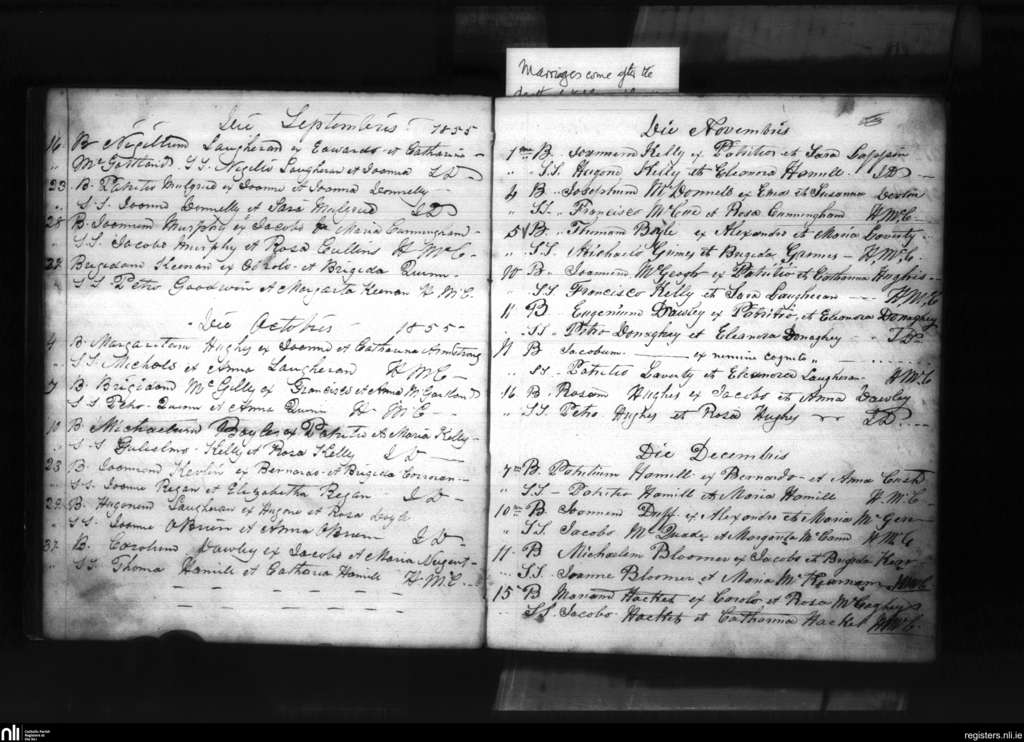 Marriages come after the
Die Septembris 1855
16 B Nigellum Laugheran ex Edwardo et Catharina
" Mc SS. Nigello Laugheran et Joanna JD
23 B. Patritio Mulgrid ex Joanne et Joanna Donnelly
" SS. Joanne Donnelly et Sara Mulgrid JD
28 B. Joannem Murphy ex Jacobo & Maria Cunningham
" SS. Jacobo Murphy et Rosa Cullins H McC.
Brigidam Keenan ex Carolo et Brigida Quinn
SS Petro Goodwin et Margarita Keenan H M.C.
Die Octobris 1855
4 B. Margaritam Hughy ex Joanne et Catharina Armstrong
" SS. Nichols et Anna Laugheran H McC
7 B Brigidam McGilly ex Francisco et Anna McGartland
SS Petro Quinn et Anna Quinn H McC
10 B Michaelum Boyles ex Patritio et Maria Kelly
" SS Gulielmo Kelly et Rosa Kelly JD
23 B. Joannem ex Bernardo et Brigida Corcoran
" SS. Joanne Regan et Elizabetha Regan JD
29 B. Hugonem Laugheran ex Hugone et Rosa Boyle
" SS. Joanne OBrien et Anna OBrien JD
B. Carolum Dawley ex Jacobo et Maria Nugent
" SS. Thoma Hamill et Catharia Hamill H McC.
Die Novembris
1 B. Joannem Kelly ex Patritio et Sara Lappin
" SS. Hugone Kelly et Eleonora Hamill JD
4 B Josephum McDonnell ex et Susanna Devlin
" SS. Francisco McCue et Rosa Cunningham H McC
5 B. Thomam Boyle ex Alexandro et Maria Laverty
" SS. Michaelo Grimes et Brigida Grimes H McC.
10 B. Joannem McGeogh ex Patritio et Catharina Hughes
" SS. Francisco Kelly et Sara Laugheran H McC
11 B. Eugenium Dawley ex Patritio et Eleonora Donaghey
" SS Petro Donaghey et Eleanora Donaghey JD
11 B Jacobum ex nemine cognito "
" SS. Patritio Laverty et Eleonora Laugheran H McC
16 B. Rosam Hughes ex Jacobo et Anna Dawley
" SS Petro Hughes et Rosa Hughes JD.
Die Decembris
7 B. Patritium Hamill ex Bernardo et Anna Cush
" SS Patritio Hamill et Maria Hamill H McC
10 B Joannem Duff ex Alexandro et Maria McGerr
" SS. Jacobo McQuade et Margarita McCann H McC
11 B Michaelem Bloomer ex Jacobo et Brigida Kerr
" SS. Joanne Bloomer et Maria McKiernan H McC
15 B Mariam Hacket ex Carolo et Rosa McGaghey
" SS. Jacobo Hacket et Catharina Hacket H McC
nli
Catholic Parish
Registers at
the NLI
registers.nli.ie